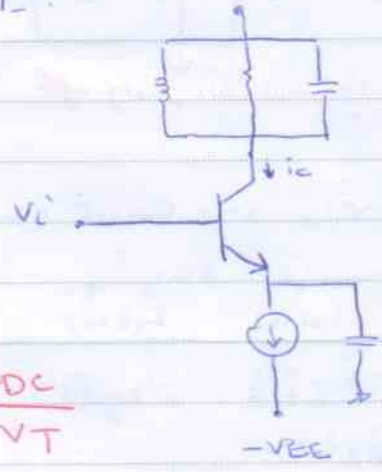 ic
Vi
DC
VT
-VEE